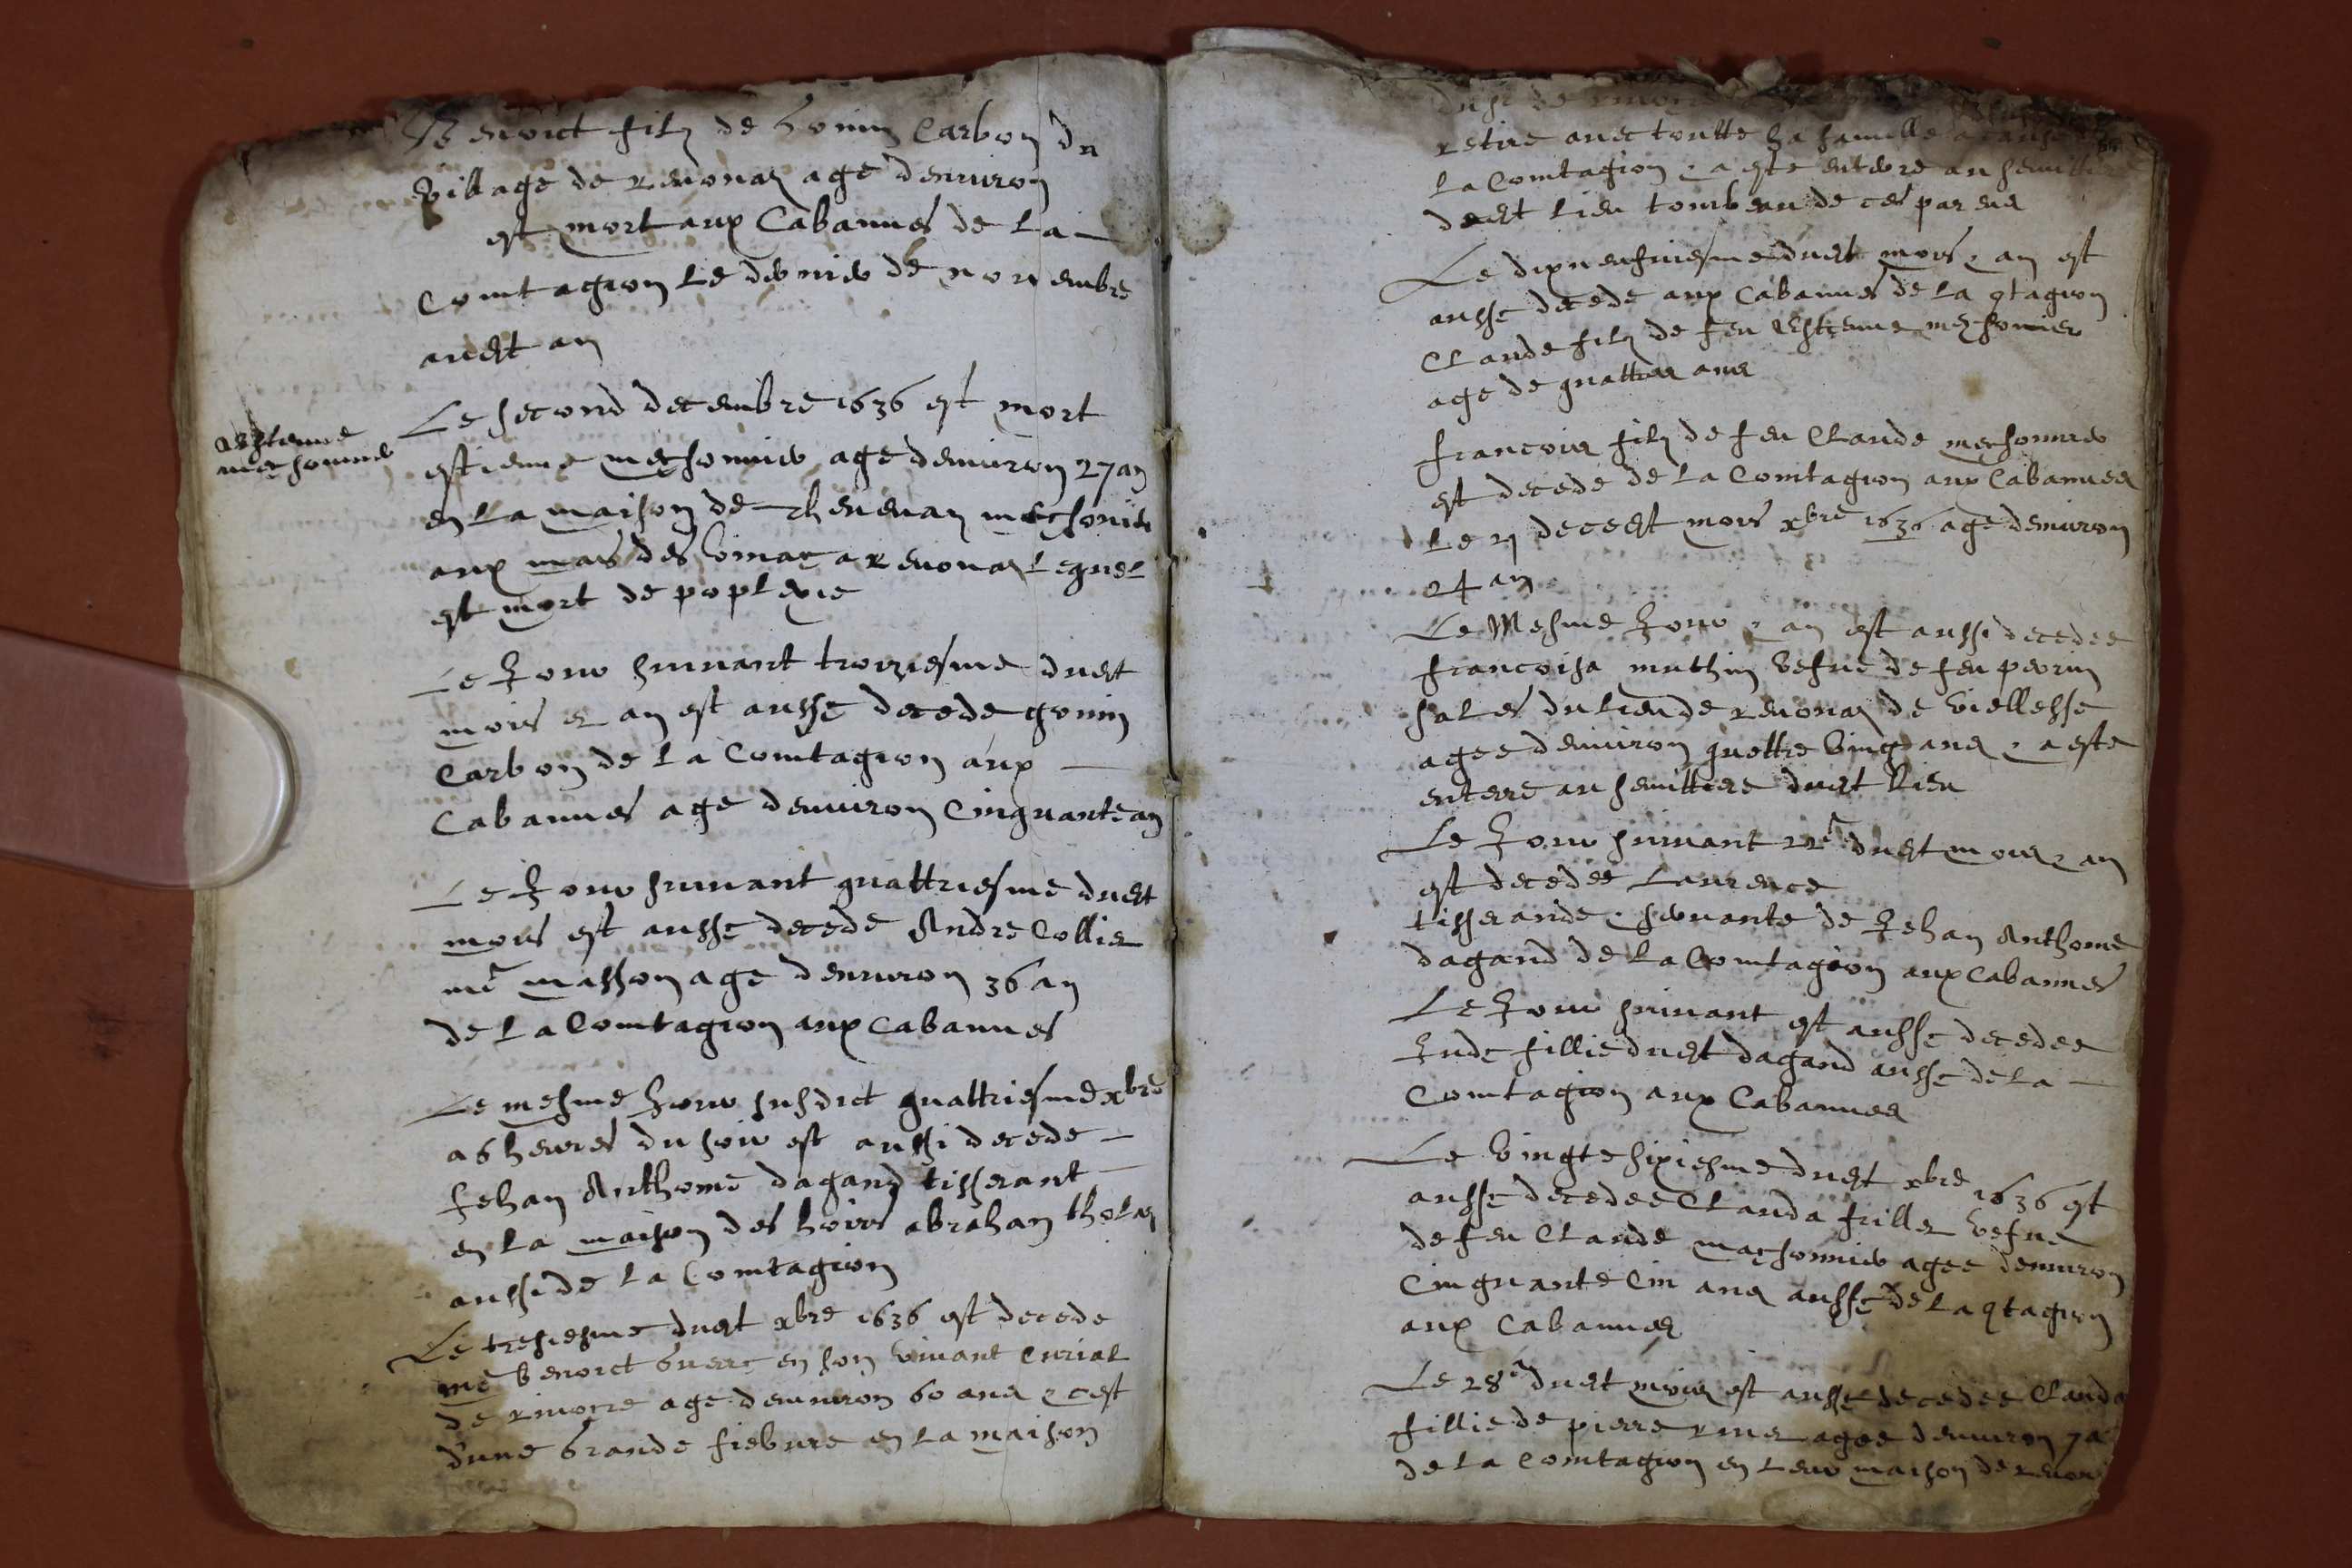 Benoict filz de Gonin Carbon du
village de revonaz age denviron
est mort aux Cabannes de la
Comtagion le dernier de novembre
avest an
Estienne
messonnier
Le second decembre 1636 est mort
estienne messonnier age denviron 27 an
en la maison de thevenan messonier
aux mas des a revonaz lequel
est mort de poplexie
Le Jour suivant troiziesme duest
mois et an est ausse decede gonin
Carbon de la Comtagion aux
Cabannes age denviron Cinquante an
Le Jour suivant quattriesme duest
mois est ausse decede Andre Collier
me masson age denviron 36 an
de la Comtagion aux Cabannes
Le mesme Jour susdict quattriesme xbre
a 6 heures du soir est aussi decede
Jehan Anthome dagand tisserant
en la maison des hoirs abrahan tholaz
aussi de la Comtagion
Le tresiesme duest xbre 1636 est decede
me benoict en son vivant Curial
de rivoire age denviron 60 ans & cest
dune Grande fiebvre en la maison
retire avec toutte sa famille a cause
la Comtagion & a este enterre au semittie
deest lieu tombeau de ces parens
Le dixneufviesme duest mois & an est
ausse decede aux Cabannes de la qtagion
Claude filz de feu Estienne messonier
age de quattres ans
francois filz de feu Claude messonnier
est decede de la Comtagion aux Cabannes
Le 21 deceest mois xbre 1636 age denviron
24 an
Le Mesme Jour & an est aussi decedee
francoisa muthin vefve de feu perrin
sales du lieu de revonaz de viellesse
agee denviron quattre vingt ans & a este
enterre au semittiere duest lieu
Le Jour suivant 22e duest mois & an
est decedee Laurence
tisserande servante de Jehan Anthome
dagand de la Comtagion aux Cabannes
Le Jour suivant est ausse decedee
Jude fillie duest dagand ausse de la
Comtagion aux Cabannes
Le vingte sixiesme duest xbre 1636 est
ausse decedee Clauda frillet vefve
de feu Claude messonnier agee denviron
Cinquante Cin ans ausse de la qtagion
aux Cabannes
Le 28e duest mois est ausse decedee Clauda
fillie de pierre agee denviron 7 a
de la Comtagion en leur maison de revon